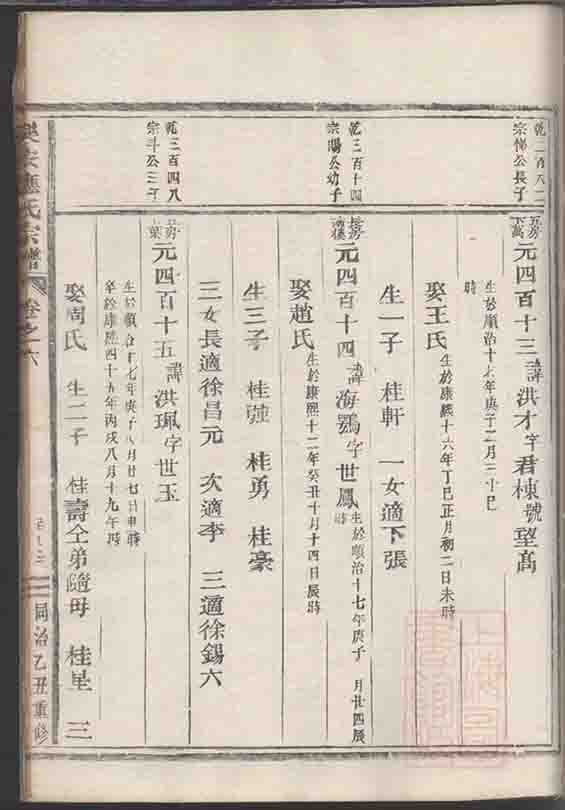 宗悌公長子
五房下萬
元四百十三諱洪才字君棟號望高
時
娶王氏生於康熙十六年丁巳正月初二日未時
生一子 桂軒 一女適下張
乾三百十四
宗陽公幼子
元四百十四諱海鶚字世鳳生於順治十七年庚子 月廿四辰時
娶趙氏生於康熙十二年癸丑十月十四日辰時
生三子 桂強 桂勇 桂豪
三女長適徐昌元 次適李 三適徐錫六
乾三百四八
宗斗公三子
元四百十五諱洪珮字世玉
生於順治十七年庚子八月廿七日申時
卒於康熙四十五年丙戌八月十九午時
娶周氏 生二子 桂壽仝弟隨母 桂星 三
應氏宗譜
卷之六
同治乙丑重修
上海圖書館